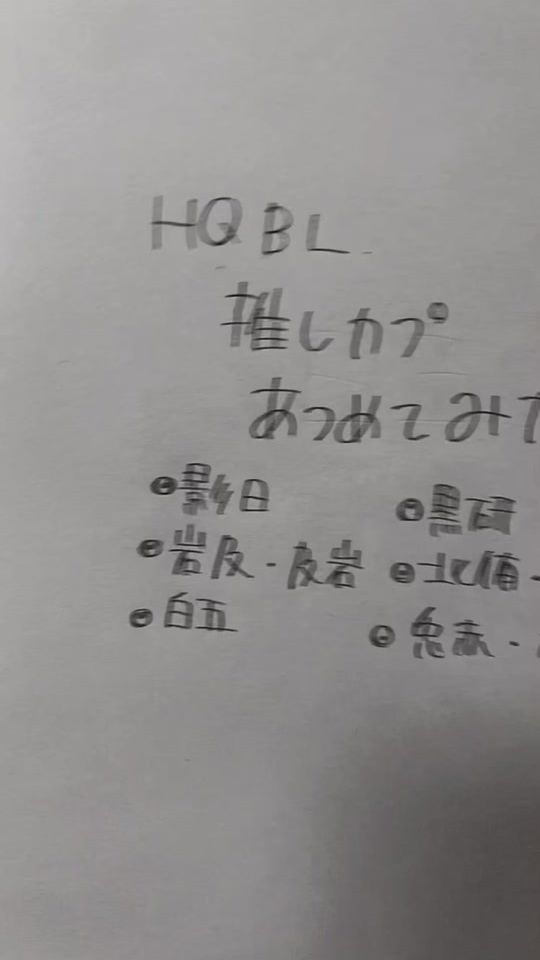 HQ BL
推しカプ
あつめてみた
●影日 ●黒研
●岩及・及岩 ●北侑・
●白五 ●兎赤・